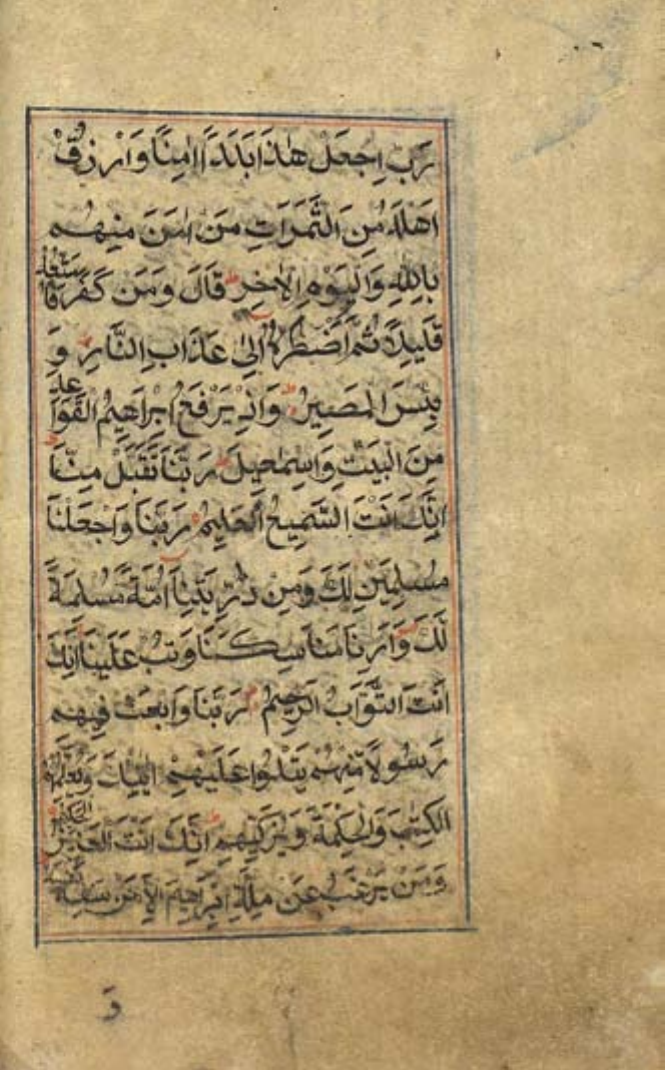 رَبِّ اجْعَلْ هٰذَا بَلَدًا اٰمِنًا وَارْزُقْ
اَهْلَهُ مِنَ الثَّمَرَاتِ مَنْ اٰمَنَ مِنْهُمْ
بِاللّٰهِ وَالْيَوْمِ الْاٰخِرِ قَالَ وَمَنْ كَفَرَ فَاُمَتِّعُهُ
قَلِيلًا ثُمَّ اَضْطَرُّهُ اِلٰى عَذَابِ النَّارِ وَ
بِئْسَ الْمَصِيرُ وَاِذْ يَرْفَعُ اِبْرَاهِيمُ الْقَوَاعِدَ
مِنَ الْبَيْتِ وَاِسْمٰعِيلَ رَبَّنَا تَقَبَّلْ مِنَّا
اِنَّكَ اَنْتَ السَّمِيعُ الْعَلِيمُ رَبَّنَا وَاجْعَلْنَا
مُسْلِمَيْنِ لَكَ وَمِنْ ذُرِّيَّتِنَا اُمَّةً مُسْلِمَةً
لَكَ وَاَرِنَا مَنَاسِكَنَا وَتُبْ عَلَيْنَا اِنَّكَ
اَنْتَ التَّوَّابُ الرَّحِيمُ رَبَّنَا وَابْعَثْ فِيهِمْ
رَسُولًا مِنْهُمْ يَتْلُوا عَلَيْهِمْ اٰيَاتِكَ وَيُعَلِّمُهُمُ
الْكِتٰبَ وَالْحِكْمَةَ وَيُزَكِّيهِمْ اِنَّكَ اَنْتَ الْعَزِيزُ الْحَكِيمُ
وَمَنْ يَرْغَبُ عَنْ مِلَّةِ اِبْرَاهِيمَ اِلَّا مَنْ سَفِهَ نَفْسَهُ
وَ